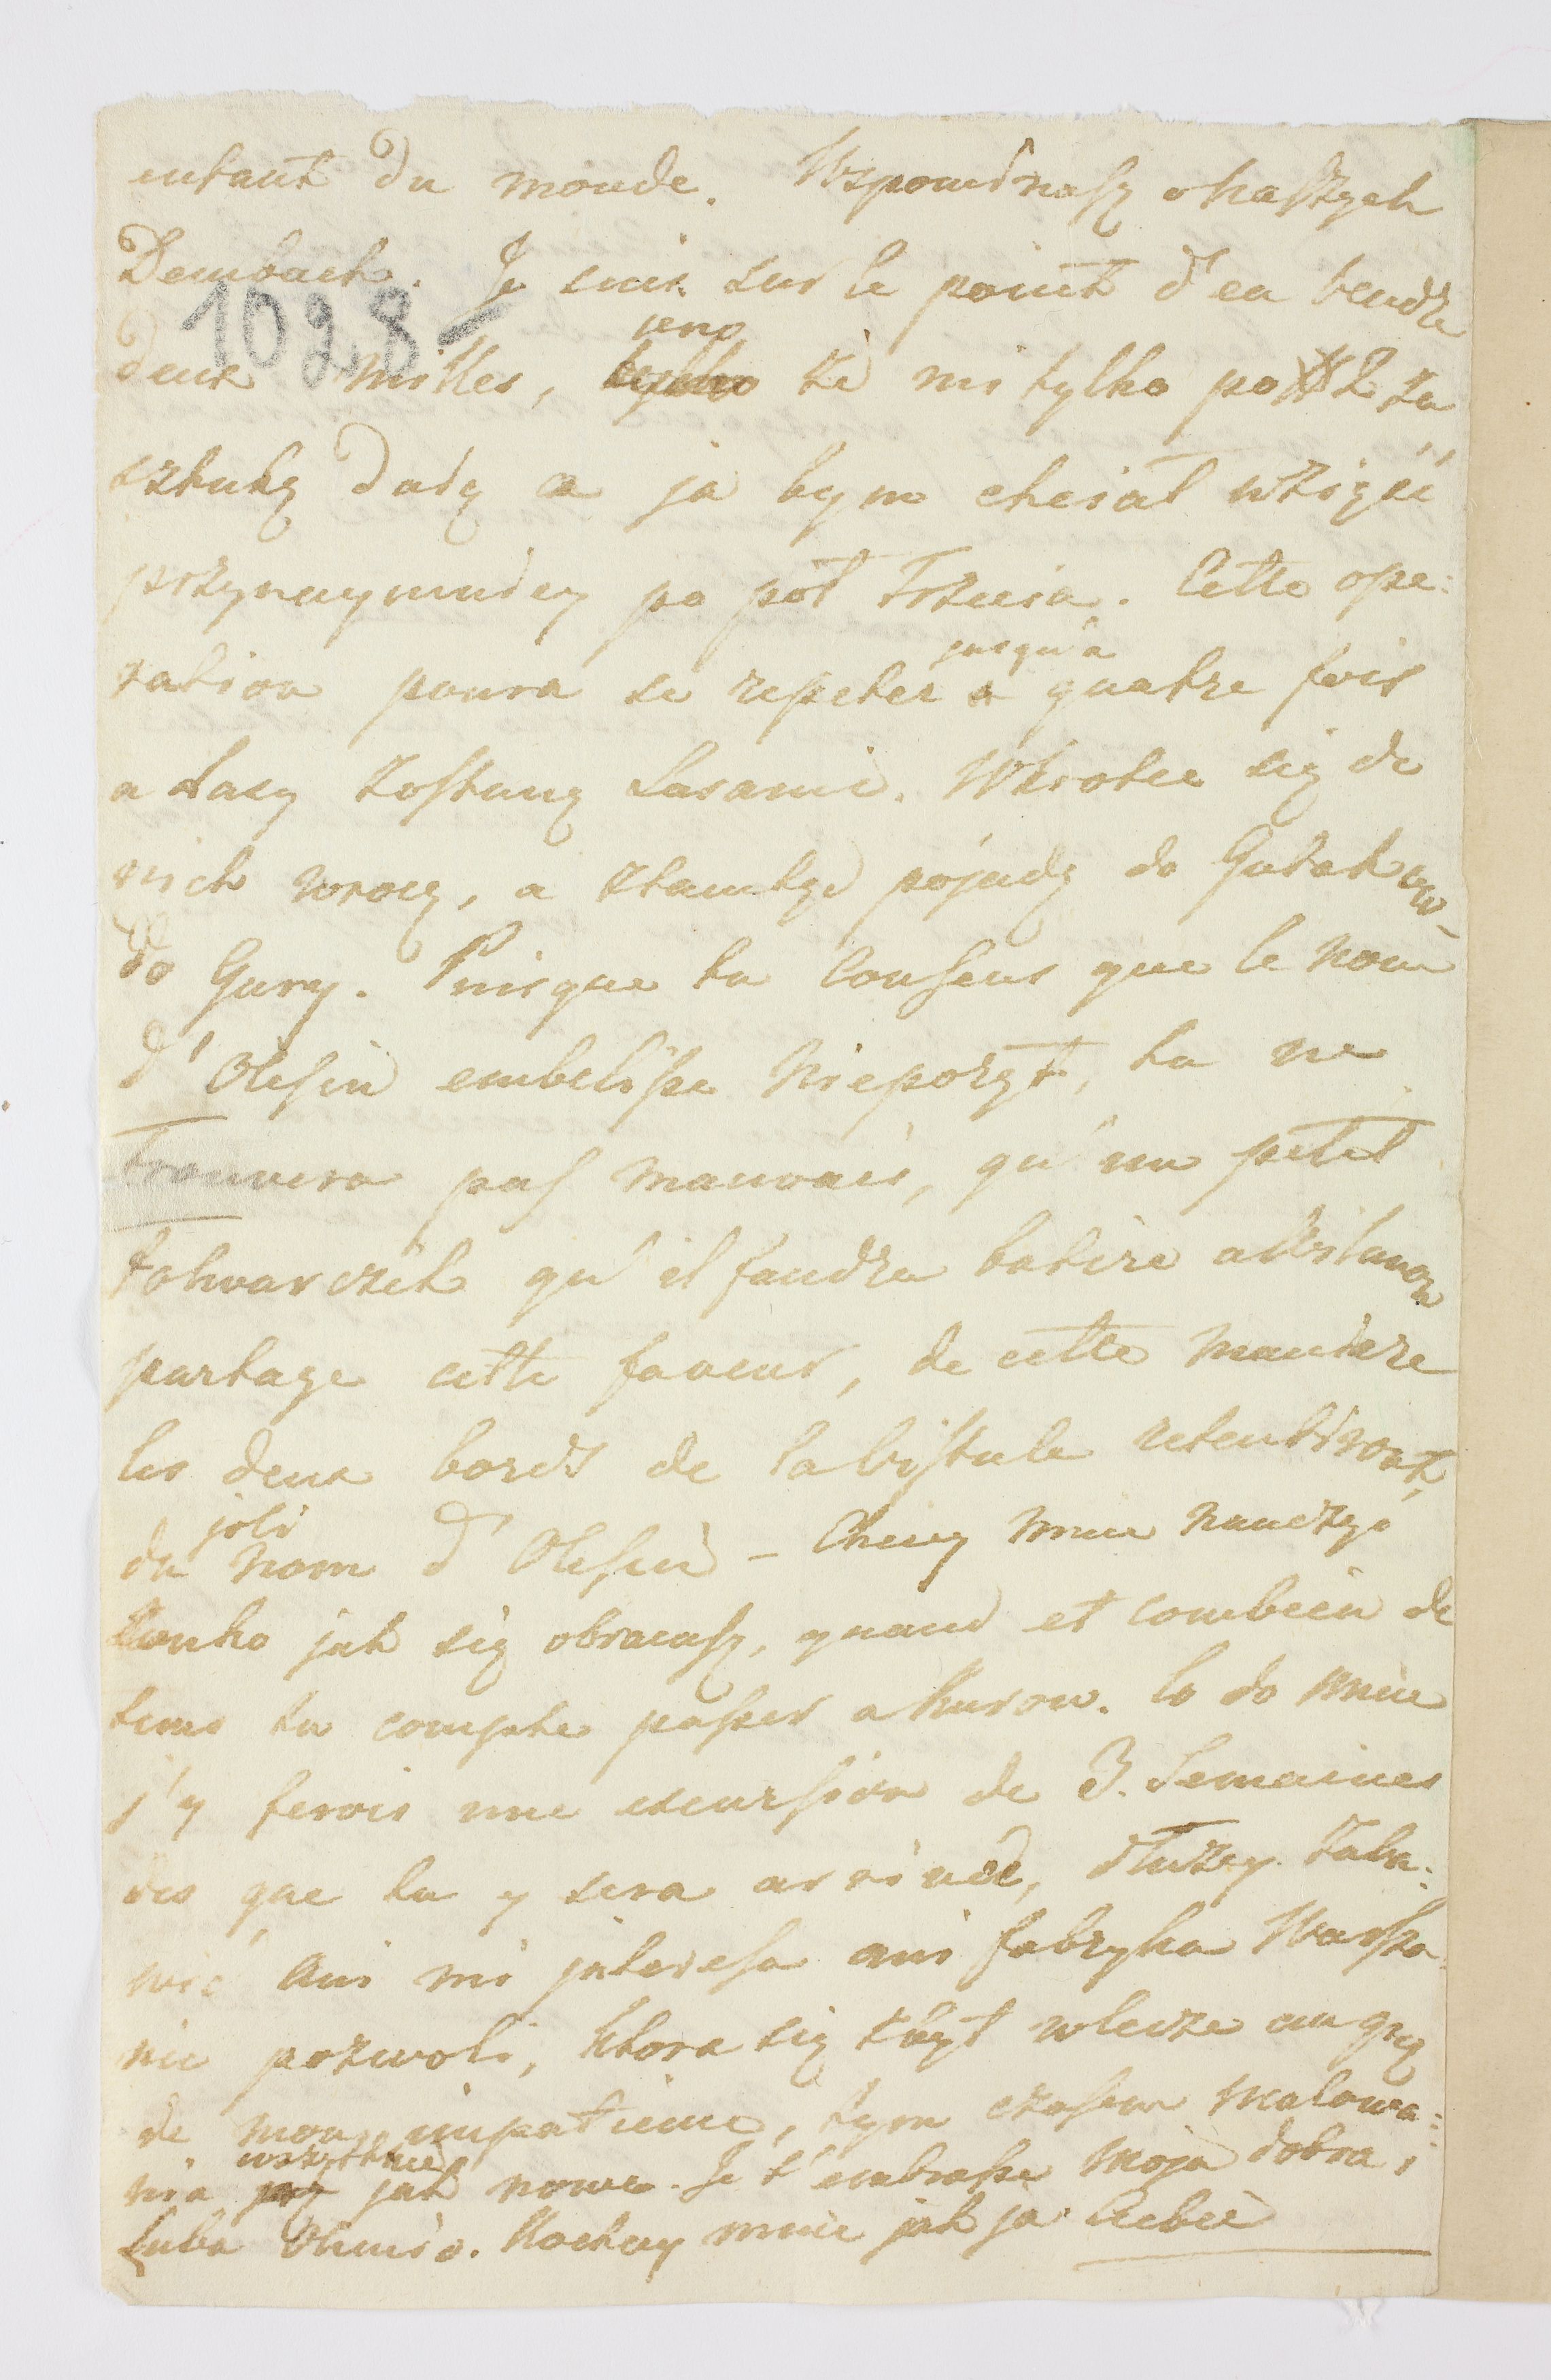 enfant du monde. Wspominasz o naszych
Dembach. Je suis sur le point d'en vendre
1028
deux milles, jeno że mi tylko po # 2 za
sztukę daią a ja bym chciał wziąść
przynaymniey po pół trzecia. Cette ope:
ration poura se repeter jusqu'a quatre fois
a Lasy zostaną Lasami. Wkrotce się do
nich wrocę, a ztamtąd pojadę do Gutak
do Gury. Puisque tu consens que le nom
d'Olesin embelisse Nieporęt, tu ne
trouvera pas mauvais, qu'un petit
folwarczek qu'il faudra batire a Wilanow
partage cette faveur, de cette maniere
les deux bords de la Vistule retentiront,
du joli nom d'Olesin – Chciey mnie nauczyć
Lonko jak się obracasz, quand et combien de
tems tu compte passer a Kurow. Co do mnie
j'y ferois une excursion de 3. Semaines
des que tu y sera arrivée, dłużey zaba:
wić ani mi interesa ani fabryka Warsza.
nie pozwoli, ktora się zbyt wlecze au gré
de mon impatience, tym czasem malowa:
nia wszystkie jak nowe. Je t'embrasse moja dobra i
luba Olusio. Kochay mnie jak ja Ciebie